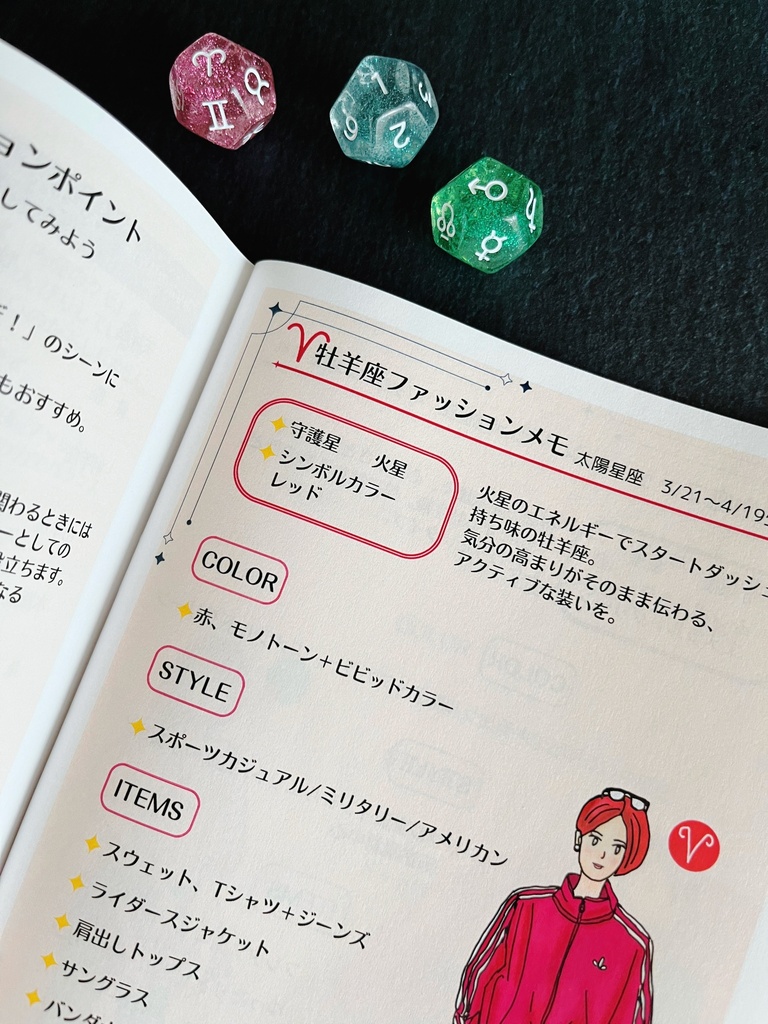 ョンポイント
してみよう
！」のシーンに
もおすすめ。
関わるときには
ーとしての
役立ちます。
なる
♈牡羊座ファッションメモ 太陽星座 3/21〜4/19
守護星 火星
シンボルカラー
レッド
火星のエネルギーでスタートダッシュ
持ち味の牡羊座。
気分の高まりがそのまま伝わる、
アクティブな装いを。
COLOR
赤、モノトーン＋ビビッドカラー
STYLE
スポーツカジュアル/ミリタリー/アメリカン
ITEMS
スウェット、Tシャツ＋ジーンズ
ライダースジャケット
肩出しトップス
サングラス
バンダナ
♈
♈ ♉ ♊
1 2 3 9
♂ ☿